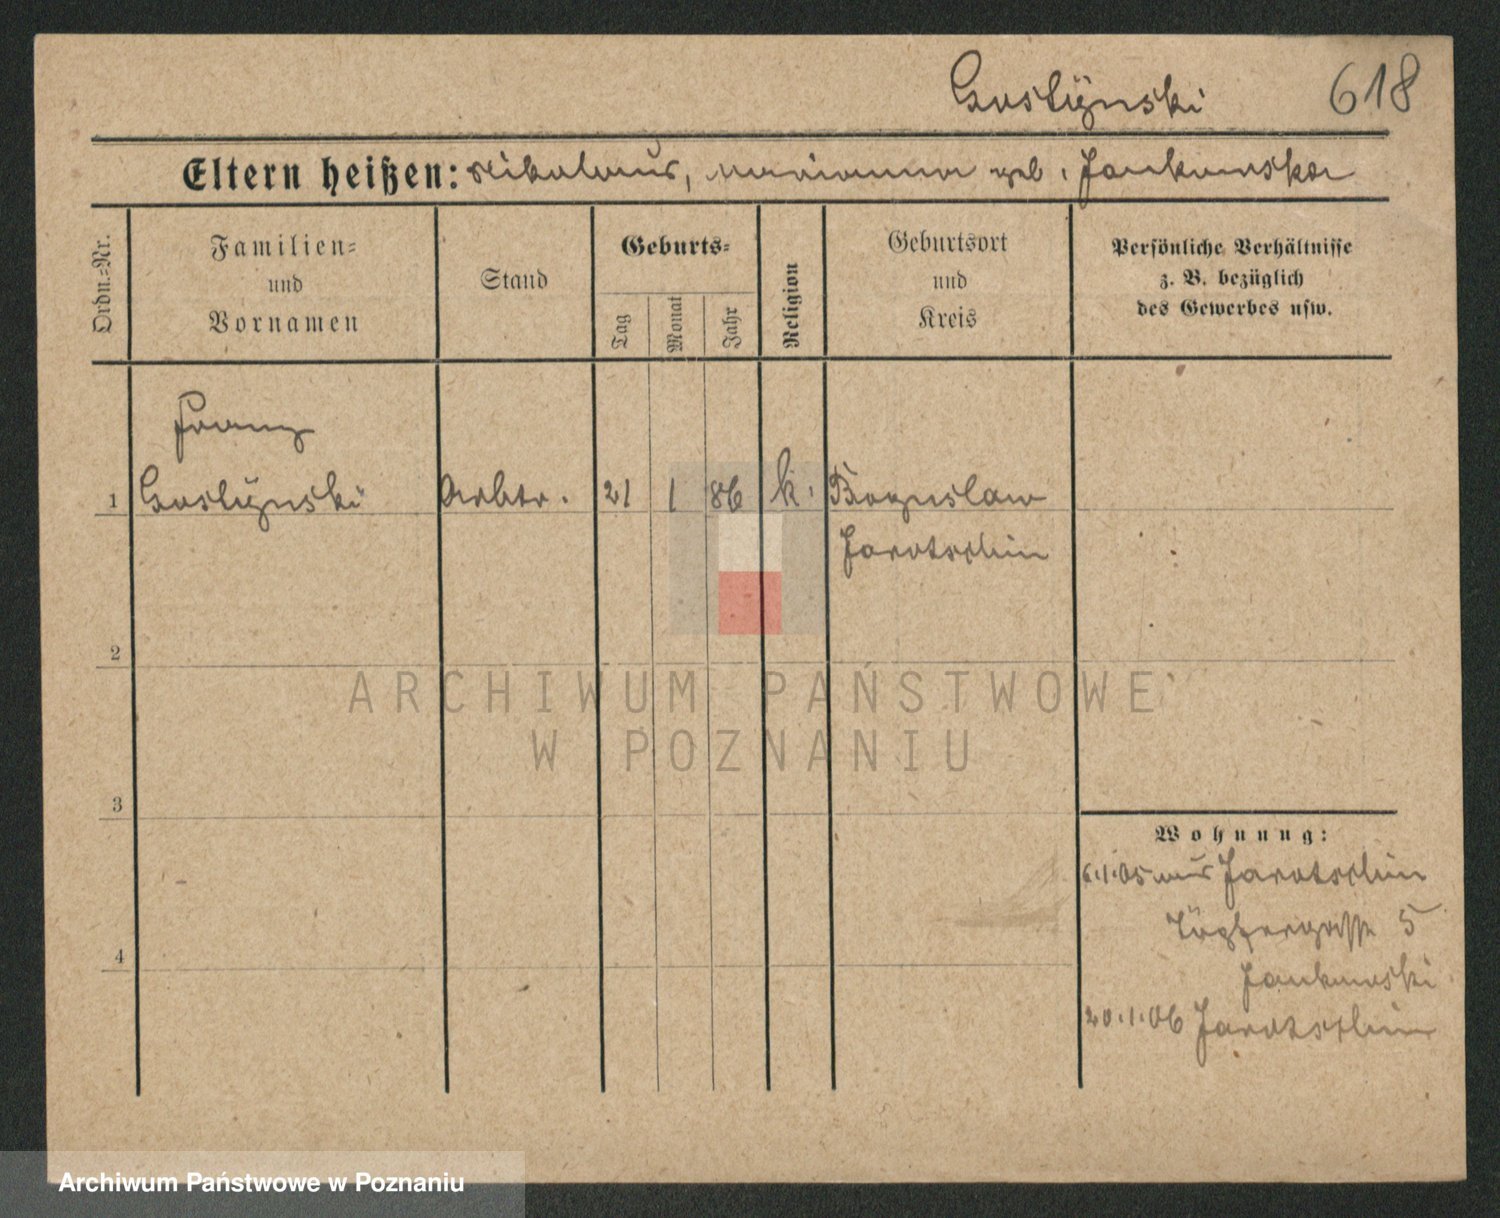 Goslÿnski 618
Eltern heißen: Nikolaus, Marianna geb. Jankowska
Ordn.=Nr.
Familien=
und
Vornamen
Stand
Geburts=
Tag
Monat
Jahr
Religion
Geburtsort
und
Kreis
Persönliche Verhältnisse
z. B. bezüglich
des Gewerbes usw.
Franz
1 Goslÿnski Arbtr. 21 1 86 k. Boguslaw
Jarotschin
2
ARCHIWUM PAŃSTWOWE
W POZNANIU
3
Wohnung:
6.1.05 aus Jarotschin
5
Jankowski
4
20.1.06 Jarotschin
Archiwum Państwowe w Poznaniu